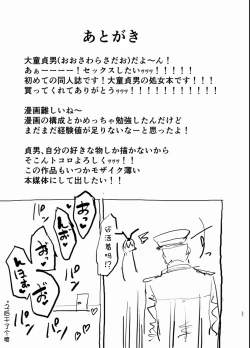 あとがき
大童貞男(おおさわらさだお)だよ～ん！
あぁーーーー！セックスしたいッッッ！！！！！
初めての同人誌です！大童貞男の処女本です！！！！
買ってくれてありがとうッッッ！！！！！！！！！！
漫画難しいね～
漫画の構成とかめっちゃ勉強したんだけど
まだまだ経験値が足りないなーと思ったよ！
貞男、自分の好きな物しか描かないから
そこんトコロよろしくゥッッッ！！！
この作品もいつかモザイク薄い
本媒体にして出したい！！
还活着吗!?
あっ♡
んお♡
パン
パン
パン